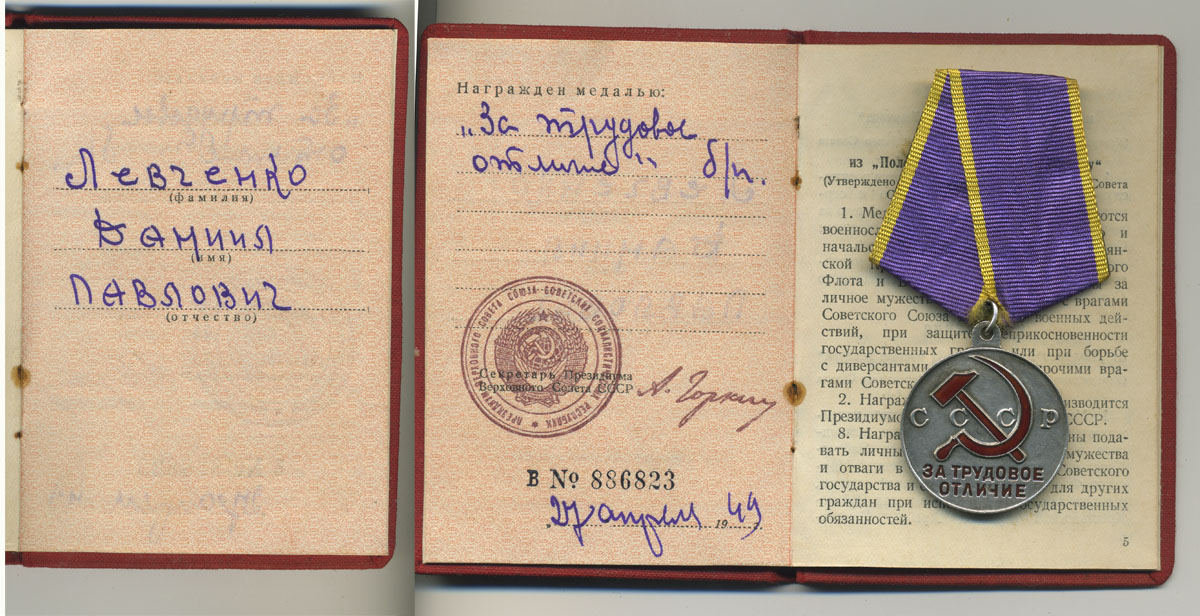 Левченко
(фамилия)
Даниил
(имя)
Павлович
(отчество)
Награжден медалью:
„За трудовое
отличие" б/н.
ПРЕЗИДИУМ ВЕРХОВНОГО СОВЕТА СОЮЗА СОВЕТСКИХ СОЦИАЛИСТИЧЕСКИХ РЕСПУБЛИК
Секретарь Президиума
Верховного Совета СССР А. Горкин
В № 886823
27 апреля 1949
из „Пол
(Утверждено Совета
С
1. Ме ются
военносл и
начальс ян-
ской К ого
Флота и В за
личное мужес с врагами
Советского Союза военных дей-
ствий, при защите неприкосновенности
государственных гр или при борьбе
с диверсантами прочими вра-
гами Советск
2. Награж изводится
Президиумо СССР.
8. Награ ны пода-
вать личны мужества
и отваги в Советского
государства и для других
граждан при исп государственных
обязанностей.
5
СССР
ЗА ТРУДОВОЕ
ОТЛИЧИЕ